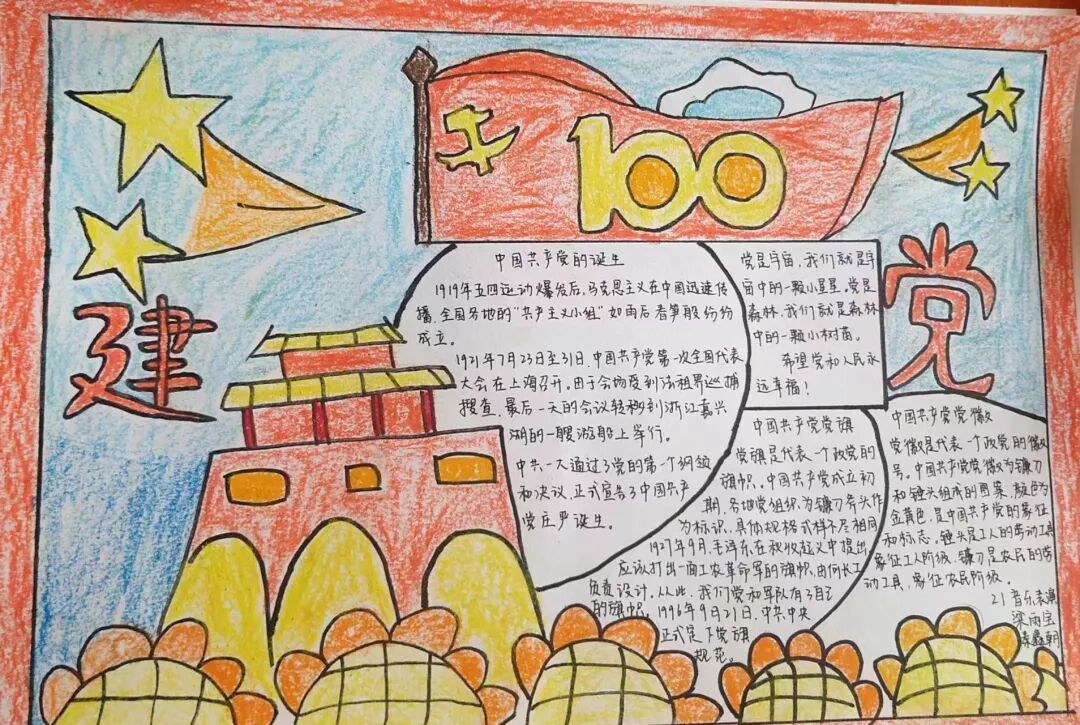 100
建
党
中国共产党的诞生
1919年五四运动爆发后,马克思主义在中国迅速传
播,全国各地的“共产主义小组”如雨后春笋般纷纷
成立。
1921年7月23日至31日,中国共产党第一次全国代表
大会在上海召开。由于会场受到法租界巡捕
搜查,最后一天的会议转移到浙江嘉兴
湖的一艘游船上举行。
中共一大通过了党的第一个纲领
和决议,正式宣告了中国共产
党庄严诞生。
党是宇宙,我们就是宇
宙中的一颗小星星,党是
森林,我们就是森林
中的一颗小树苗。
希望党和人民永
远幸福!
中国共产党党旗
党旗是代表一个政党的
旗帜。中国共产党成立初
期,各地党组织,为镰刀斧头作
为标识,具体规格式样不尽相同
1927年9月,毛泽东在秋收起义中提出
应该打出一面工农革命军的旗帜,由何长工
负责设计。从此,我们党和军队有了自己
的旗帜。1996年9月21日,中共中央
正式定下党旗
规范。
中国共产党党徽
党徽是代表一个政党的徽
号。中国共产党党徽为镰刀
和锤头组成的图案,颜色为
金黄色,是中国共产党的象征
和标志。锤头是工人的劳动工具
象征工人阶级,镰刀是农民的劳
动工具,象征农民阶级。
21音乐表演
梁雨宝